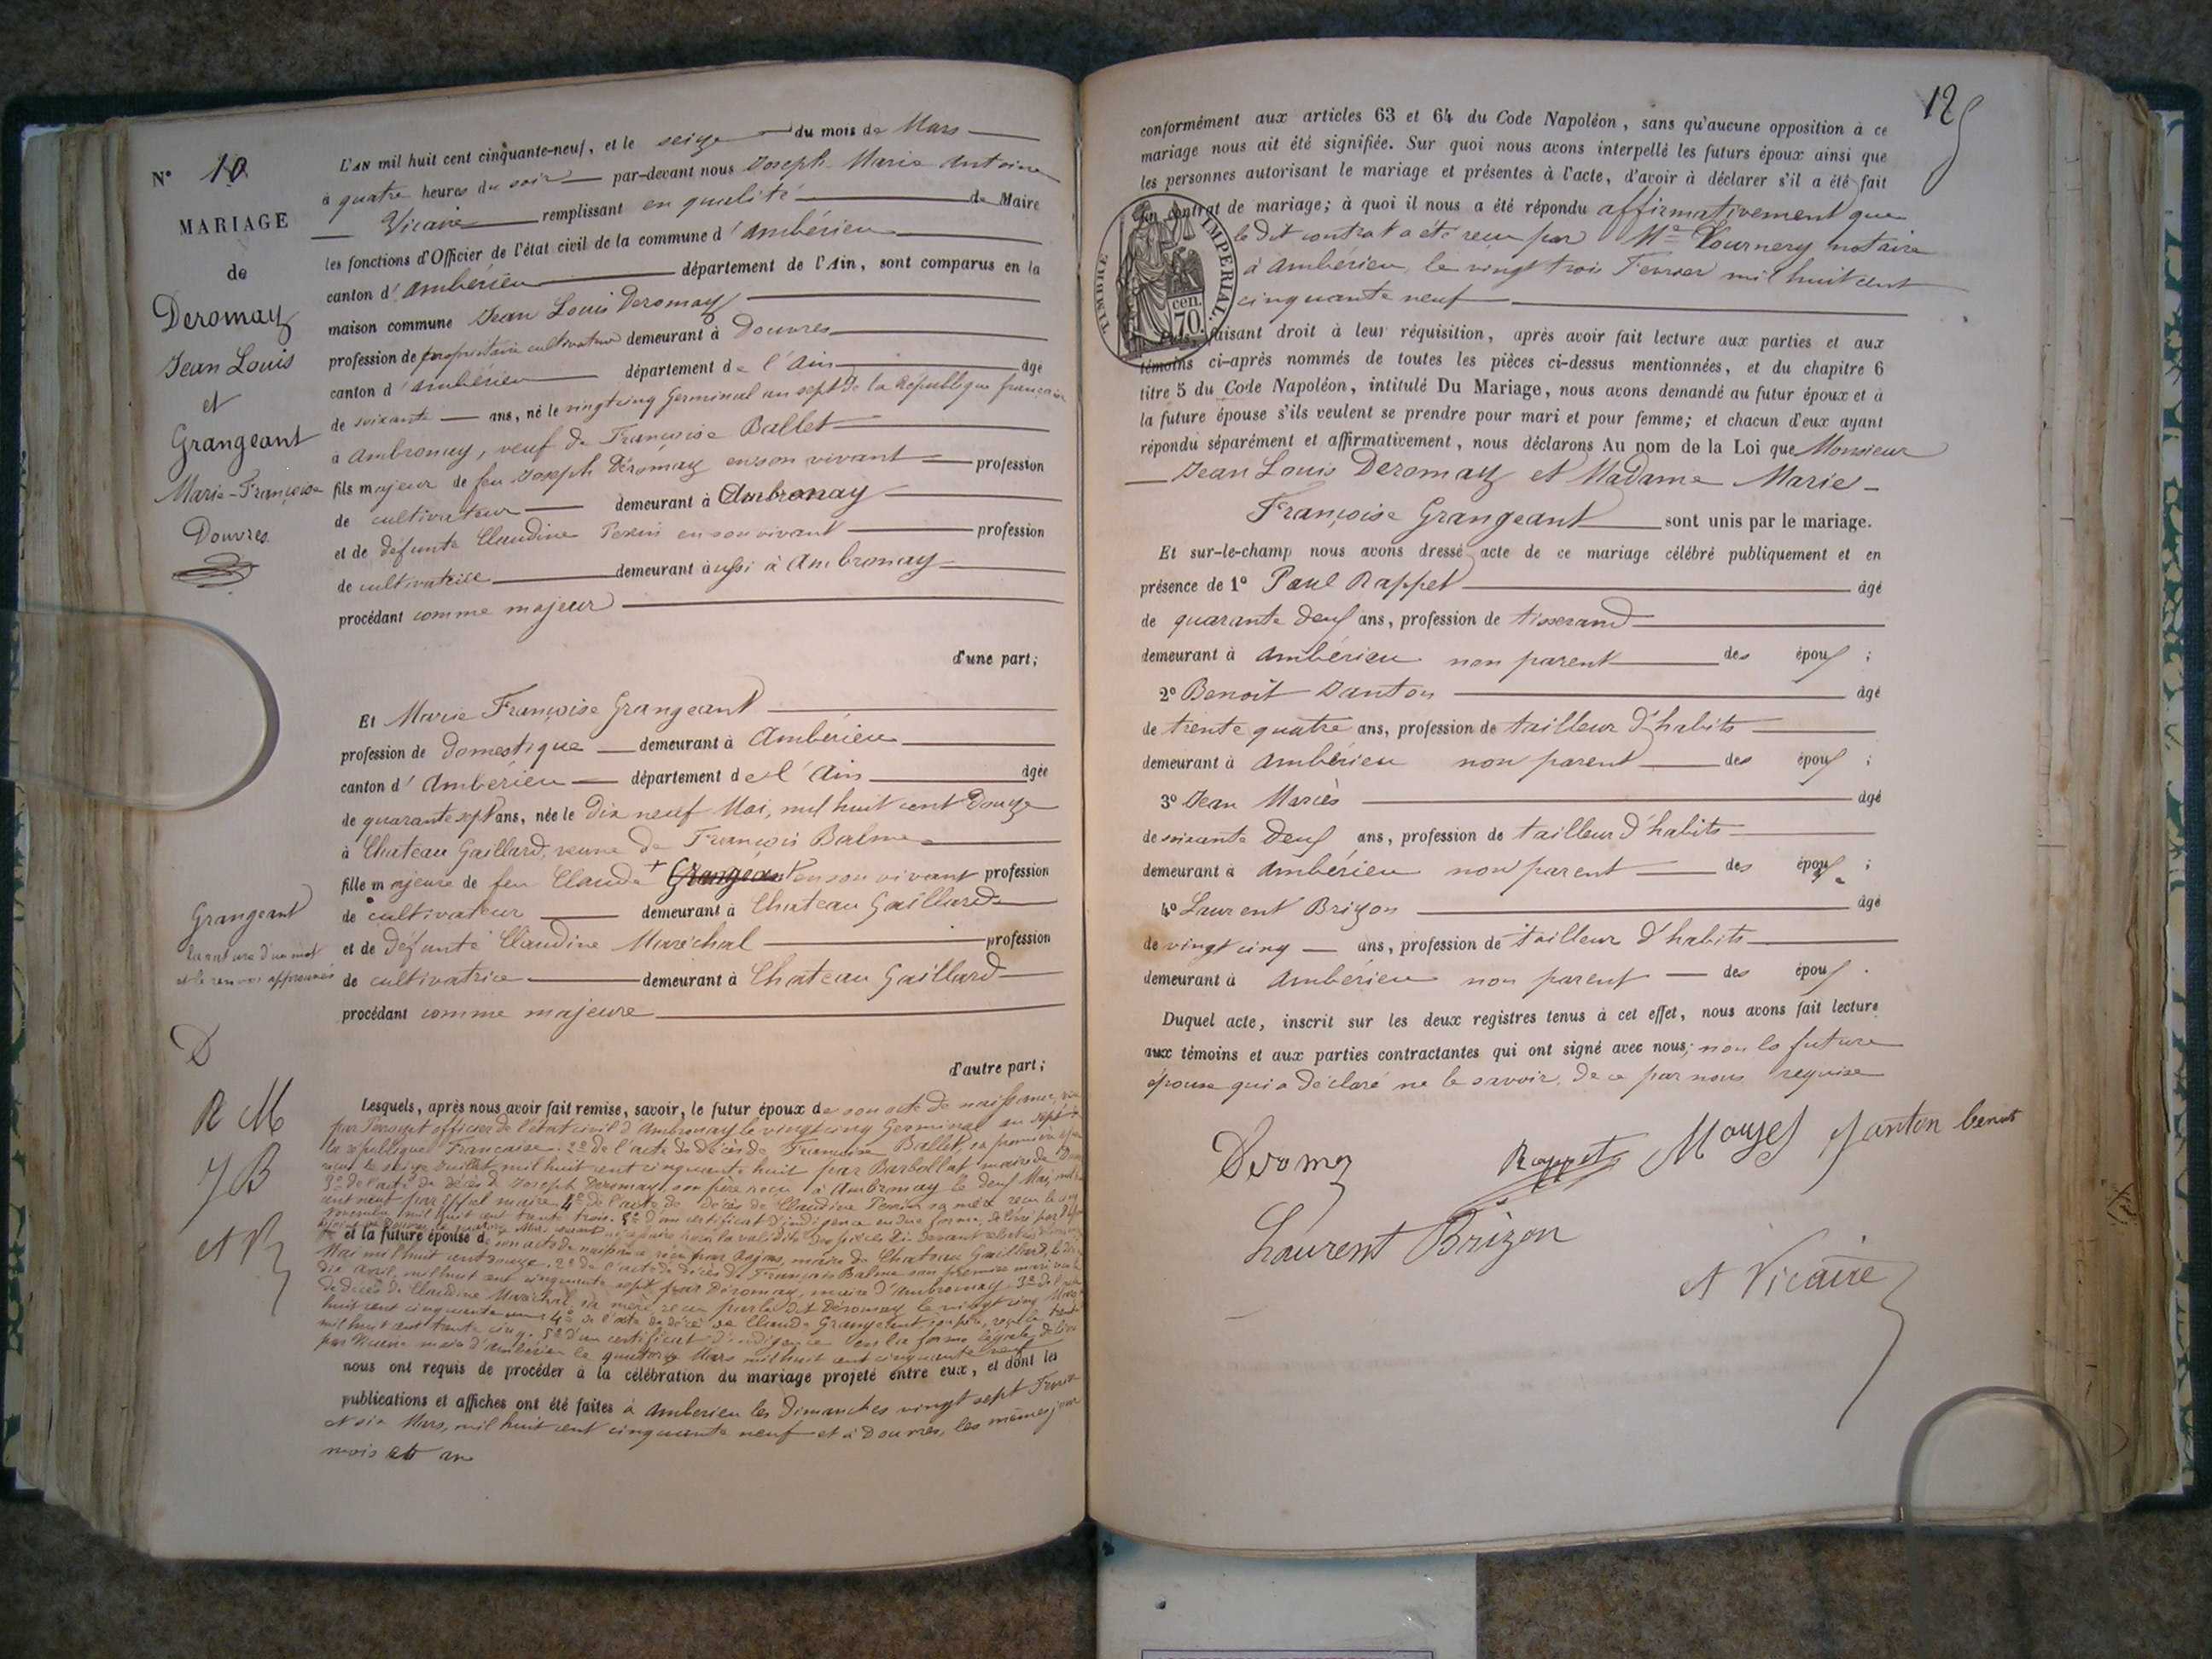 N° 10
MARIAGE
de
Deromay
Jean Louis
et
Grangeant
Marie-Françoise
Douvres
Grangeant
la rature d'un mot
et le renvoi approuvés
D
R M
J B
A V
L'AN mil huit cent cinquante-neuf, et le seize du mois de Mars
à quatre heures du soir par-devant nous Joseph Marie Antoine
Vicaire remplissant en qualité de Maire
les fonctions d'Officier de l'état civil de la commune d'Ambérieu
canton d'Ambérieu département de l'Ain, sont comparus en la
maison commune Jean Louis Deromay
profession de propriétaire cultivateur demeurant à Douvres
canton d'Ambérieu département de l'Ain âgé
de soixante ans, né le vingt cinq Germinal an sept de la République française
à Ambronay, veuf de Françoise Ballet
fils majeur de feu Joseph Déromay en son vivant profession
de cultivateur demeurant à Ambronay
et de défunte Claudine en son vivant profession
de cultivatrice demeurant aussi à Ambronay
procédant comme majeur
d'une part;
Et Marie Françoise Grangeant
profession de domestique demeurant à Ambérieu
canton d'Ambérieu département de l'Ain âgée
de quarante sept ans, née le dix neuf Mai, mil huit cent douze
à Chateau Gaillard, veuve de François Balme
fille majeure de feu Claude + Grangeant en son vivant profession
de cultivateur demeurant à Chateau Gaillard
et de défunte Claudine Maréchal profession
de cultivatrice demeurant à Chateau Gaillard
procédant comme majeure
d'autre part;
Lesquels, après nous avoir fait remise, savoir, le futur époux de son acte de naissance,
par officier de l'état civil d'Ambronay le vingt cinq Germinal an sept de
la république Française. 2° de l'acte de décès de Françoise Ballet, sa première
reçu le seize Juillet mil huit cent cinquante huit par Barbollat maire de
3° de l'acte de décès de Joseph Deromay, son père reçu à Ambronay le deux Mai, mil
cent neuf par maire 4° de l'acte de décès de Claudine sa mère reçu le
novembre mil huit cent trente trois. 5° d'un certificat d'indigence en due forme, délivré par
et la future épouse de son acte de naissance, reçu par maire de Chateau Gaillard, le dix
Mai mil huit cent douze. 2° de l'acte de décès de François Balme son premier mari
dix avril, mil huit cent cinquante sept par Déromay, maire d'Ambronay 3° de l'acte
de décès de Claudine Maréchal, sa mère, reçu par le dit Déromay le vingt cinq
huit cent cinquante 4° de l'acte de décès de Claude Grangeant son père, reçu le
mil huit cent trente cinq. 5° d'un certificat d'indigence en la forme légale, délivré
par maire d'Ambérieu le quatorze Mars mil huit cent cinquante neuf
nous ont requis de procéder à la célébration du mariage projeté entre eux, et dont les
publications et affiches ont été faites à Amberieu les Dimanches vingt sept Fevrier
et six Mars, mil huit cent cinquante neuf et à Douvres, les mêmes jour
mois et an
125
conformément aux articles 63 et 64 du Code Napoléon, sans qu'aucune opposition à ce
mariage nous ait été signifiée. Sur quoi nous avons interpellé les futurs époux ainsi que
les personnes autorisant le mariage et présentes à l'acte, d'avoir à déclarer s'il a été fait
un contrat de mariage; à quoi il nous a été répondu affirmativement que
le dit contrat a été reçu par Me notaire
à Ambérieu, le vingt trois Fevrier mil huit cent
cinquante neuf
TIMBRE IMPERIAL
70 cen.
faisant droit à leur réquisition, après avoir fait lecture aux parties et aux
témoins ci-après nommés de toutes les pièces ci-dessus mentionnées, et du chapitre 6
titre 5 du Code Napoléon, intitulé Du Mariage, nous avons demandé au futur époux et à
la future épouse s'ils veulent se prendre pour mari et pour femme; et chacun d'eux ayant
répondu séparément et affirmativement, nous déclarons Au nom de la Loi que Monsieur
Jean Louis Deromay et Madame Marie
Françoise Grangeant sont unis par le mariage.
Et sur-le-champ nous avons dressé acte de ce mariage célébré publiquement et en
présence de 1° Paul Rappet âgé
de quarante deux ans, profession de tisserand
demeurant à Ambérieu non parent des époux ;
2° Benoît Janton âgé
de trente quatre ans, profession de tailleur d'habits
demeurant à Ambérieu non parent des époux ;
3° Jean âgé
de soixante deux ans, profession de tailleur d'habits
demeurant à Ambérieu non parent des époux ;
4° Laurent Brizon âgé
de vingt cinq ans, profession de tailleur d'habits
demeurant à Ambérieu non parent des époux.
Duquel acte, inscrit sur les deux registres tenus à cet effet, nous avons fait lecture
aux témoins et aux parties contractantes qui ont signé avec nous; non la future
épouse qui a déclaré ne le savoir, de ce par nous requise
Deromay Rappet Janton benoit
Laurent Brizon
A Vicaire